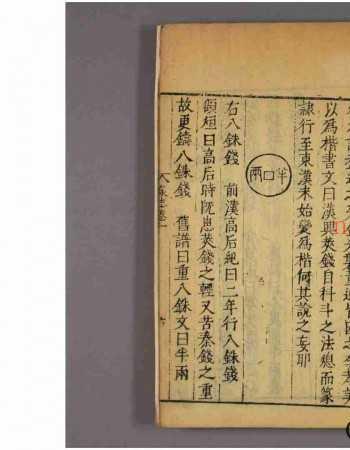 以為楷書文曰漢興莢錢自科斗之法總而篆
隸行至東漢末始變為楷何其說之妄耶
半兩
右八銖錢 前漢高后紀曰二年行八銖錢
顧烜曰高后時既患莢錢之輕又苦秦錢之重
故更鑄八銖錢 舊譜曰重八銖文曰半兩